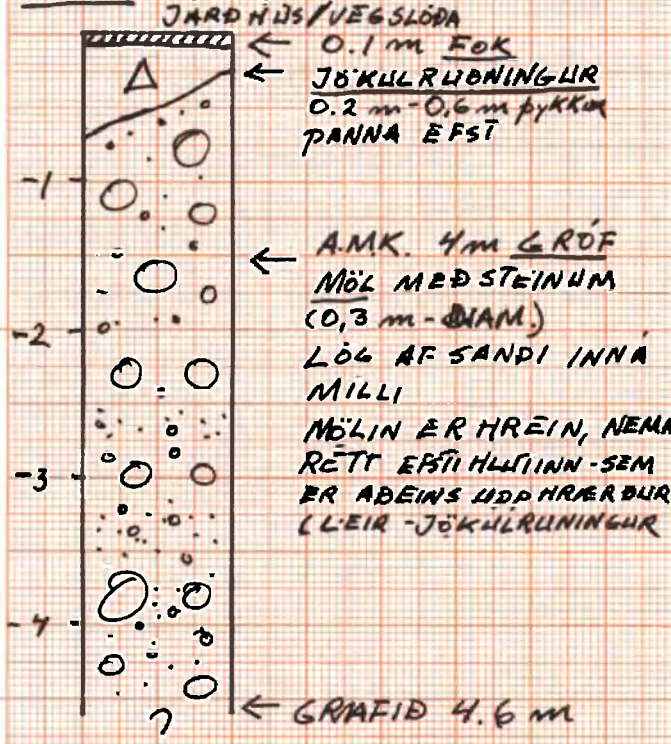 JARÐHÚS/VEGSLÓÐA
← 0.1 m FOK
← JÖKULRUÐNINGUR
0.2 m - 0.6 m þykkur
PANNA EFST
-1
← A.M.K. 4m GRÓF
MÖL MEÐ STEINUM
(0,3 m - DIAM.)
-2
LÖG AF SANDI INNÁ
MILLI
MÖLIN ER HREIN, NEMA
-3
RÉTT EFSTI HLUTINN - SEM
ER AÐEINS UPPHRÆRÐUR
(LEIR - JÖKULRUNINGUR
-4
← GRAFIÐ 4.6 m
?